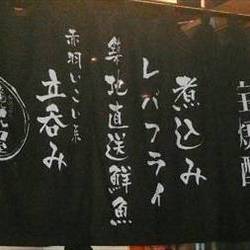 焼酎
煮込み
レバフライ
築地直送鮮魚
立呑み
赤羽いこい系